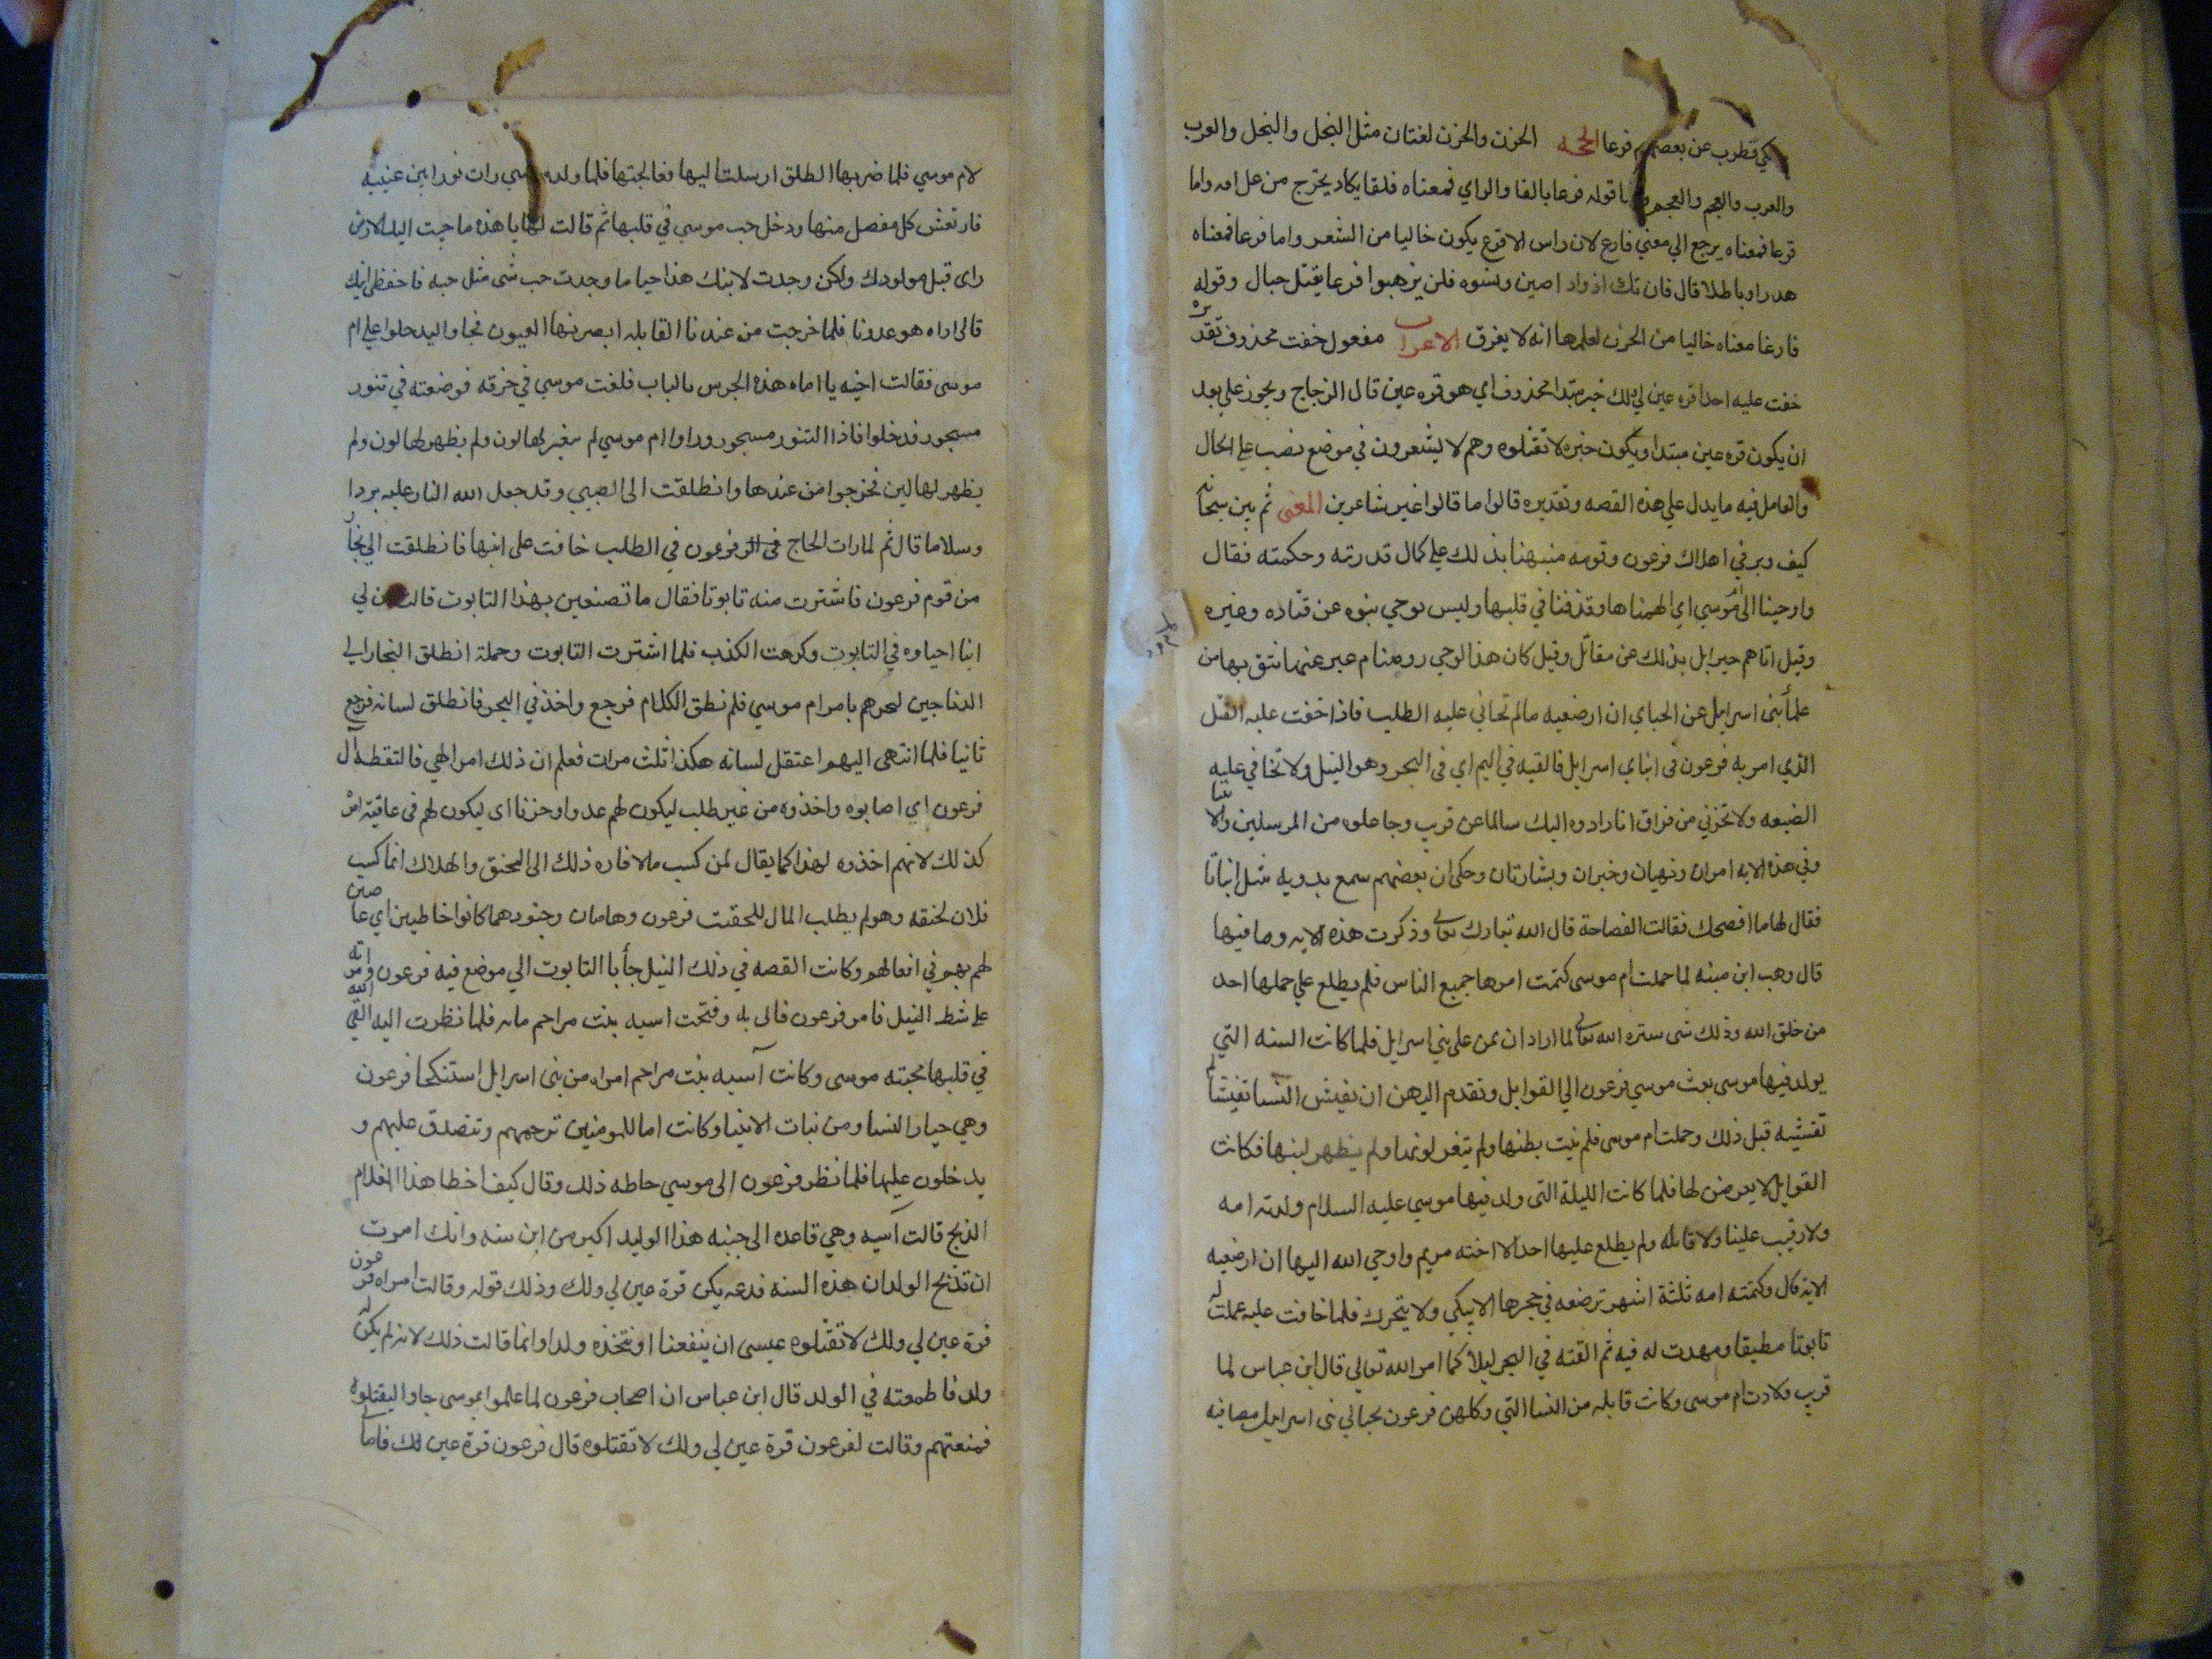 قطرب عن بعضهم فرعا الحجه الحزن والحزن لغتان مثل النجل والنجل والعرب
والعرب والعجم والعجم قوله فزعا بالفا والزاي فمعناه فلقا يكاد يخرج من علافه واما
قرعا فمعناه يرجع الي معني فارع لان راس الاقرع يكون خاليا من الشعر واما فرعا فمعناه
هدرا وباطلا قال فان تك اذواد اصبن ونسوه فلن يزهبوا فرعا بقتل حبال وقوله
فارغا معناه خاليا من الحزن لعلمها انه لا يغرق الاعراب مفعول خفت محذوف تقديره
خفت عليه احدا قره عين لي ولك خبر مبتدا محذوف اي هو قره عين قال الزجاج ويجوز علي بعد
ان يكون قره عين مبتدا ويكون خبره لا تقتلوه وهم لا يشعرون في موضع نصب علي الحال
والعامل فيه ما يدل علي هذه القصه وتقديره قالوا ما قالوا غير شاعرين المعنى ثم بين سبحانه
كيف دبر في اهلاك فرعون وقومه منبهنا بذلك علي كمال قدرته وحكمته فقال
واوحينا الى ام موسي اي الهمناها وقذفنا في قلبها وليس بوحي نبوه عن قتاده وغيره
وقيل اتاهم جبرايل بذلك عن مقاتل وقيل كان هذا الوحي رويا منام عبر عنها نتق بها من
علما بنى اسرايل عن الجباي ان ارضعيه ما لم تخافي عليه الطلب فاذا خفت عليه القتل
الذي امر به فرعون في ابناي اسرايل فالقيه في اليم اي في البحر وهو النيل ولا تخافي عليه
الضيعه ولا تحزني من فراق انا رادوه اليك سالما عن قريب وجاعلوه من المرسلين والانبيا
وفي هذه الايه امران ونهيان وخبران وبشارتان وحكى ان بعضهم سمع بدويه تنشد ابياتا
فقال لها ما افصحك فقالت الفصاحة قال الله تبارك تعالي وذكرت هذه الايه وما فيها
قال وهب ابن منبه لما حملت ام موسى كتمت امرها جميع الناس فلم يطلع علي حملها احد
من خلق الله وذلك شى ستره الله تعالي لما اراد ان يمن على بني اسرايل فلما كانت السنه التي
يولد فيها موسى بعث موسي فرعون الي القوابل وتقدم اليهن ان تفيش النسا تفيتشا لم
تفتشيه قبل ذلك وحملت ام موسى فلم ينت بطنها ولم يتغر لونها ولم يظهر لبنها فكانت
القوابل لا يعرضن لها فلما كانت الليلة التي ولد فيها موسي عليه السلام ولدته امه
ولا رقيب علينا ولا قابله ولم يطلع عليها احد الا اخته مريم واوحي الله اليها ان ارضعيه
الايه قال وكمته امه ثلثة اشهر ترضعه في حجرها لا يبكي ولا يتحرك فلما خافت عليه عملت له
تابوتا مطبقا ومهدت له فيه ثم القته في البحر ليلا كما امر الله تعالي قال ابن عباس لما
قرب ولادت ام موسى وكانت قابله من النسا التي وكلهن فرعون بحبالي بنى اسرايل مصافيه
لام موسي فلما ضربها الطلق ارسلت اليها فعالجتها فلما ولد موسي رات نورا بين عنييه
فارتعش كل مفصل منها ودخل حب موسي في قلبها ثم قالت لها يا هذه ما جيت اليك الا ومن
راى قبل مولودك ولكن وجدت لابنك هذا حبا ما وجدت حب شى مثل حبه فاحفظي ابنك
قالى اراه هو عدونا فلما خرجت من عندنا القابله ابصرتها العيون فجاوا ليدخلوا علي ام
موسى فقالت اخيه يا اماه هذه الحرس بالباب فلفت موسي في خرقه فوضعته في تنور
مسجور فدخلوا فاذا التنور مسجور وراوا ام موسي لم يتغير لها لون ولم يظهر لها لون ولم
يظهر لها لبن فخرجوا من عندها وانطلقت الى الصبي وقد جعل الله النار عليه بردا
وسلاما قال ثم لما رات الحاح في الر فرعون في الطلب خافت على ابنها فانطلقت الي نجار
من قوم فرعون فاشترت منه تابوتا فقال ما تصنعين بهذا التابوت قالت لي
ابنا احباوه في التابوت وكرهت الكذب فلما اشترت التابوت وحملة انطلق النجار الي
الدناجين لبحرهم بامر ام موسي فلم نطق الكلام فرجع واخذ في البحر فانطلق لسانه فرجع
ثانيا فلما انتهى اليهم اعتقل لسانه هكذا ثلث مرات فعلم ان ذلك امر الهي فالتقطه آل
فرعون اي اصابوه واخذوه من غير طلب ليكون لهم عدوا وحزنا اى ليكون لهم فى عاقبة امره
كذلك لا نهم اخذوه لهذا كما يقال لمن كسب مالا فاده ذلك الى المحنق والهلاك انما كسب
فلان لحتفه وهو لم يطلب المال للحقت فرعون وهامان وجنودهما كانوا خاطيين اي عاصين
لهم بهم في افعالهم وكانت القصه في ذلك النيل جا با التابوت الي موضع فيه فرعون وامراته
علي شط النيل فامر فرعون فاتى به وفتحت اسيه بنت مزاحم بابه فلما نظرت اليه القي الله
في قلبها محبته موسى وكانت آسيه بنت مزاحم امراه من بنى اسرايل استنكحا فرعون
وهي خيار النسا ومن نبات الانبيا وكانت اما للمومنين ترحمهم وتتصدق عليهم و
يدخلون عليها فلما نظر فرعون الى موسي حاطه ذلك وقال كيف اخطا هذا الغلام
الذبح قالت آسيه وهي قاعده الى جنبه هذا الوليد اكبر من ابن سنه وانك امرت
ان تذبح الولدان هذه السنه فدعه يكن قرة عين لي ولك وذلك قوله وقالت امراه فرعون
قرة عين لي ولك لا تقتلوه عيسى ان ينفعنا او نتخذه ولدا وانما قالت ذلك لانه لم يكن له
ولد فاطمعته في الولد قال ابن عباس ان اصحاب فرعون لما علموا بموسى جاوا ليقتلوه
فمنعتهم وقالت لفرعون قرة عين لي ولك لا تقتلوه قال فرعون قرة عين لك فاما